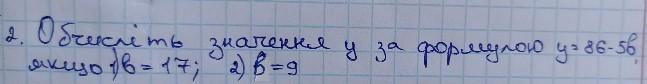 2. Обчисліть значення y за формулою y=86-5b,
якщо 1)b=17; 2) b=9